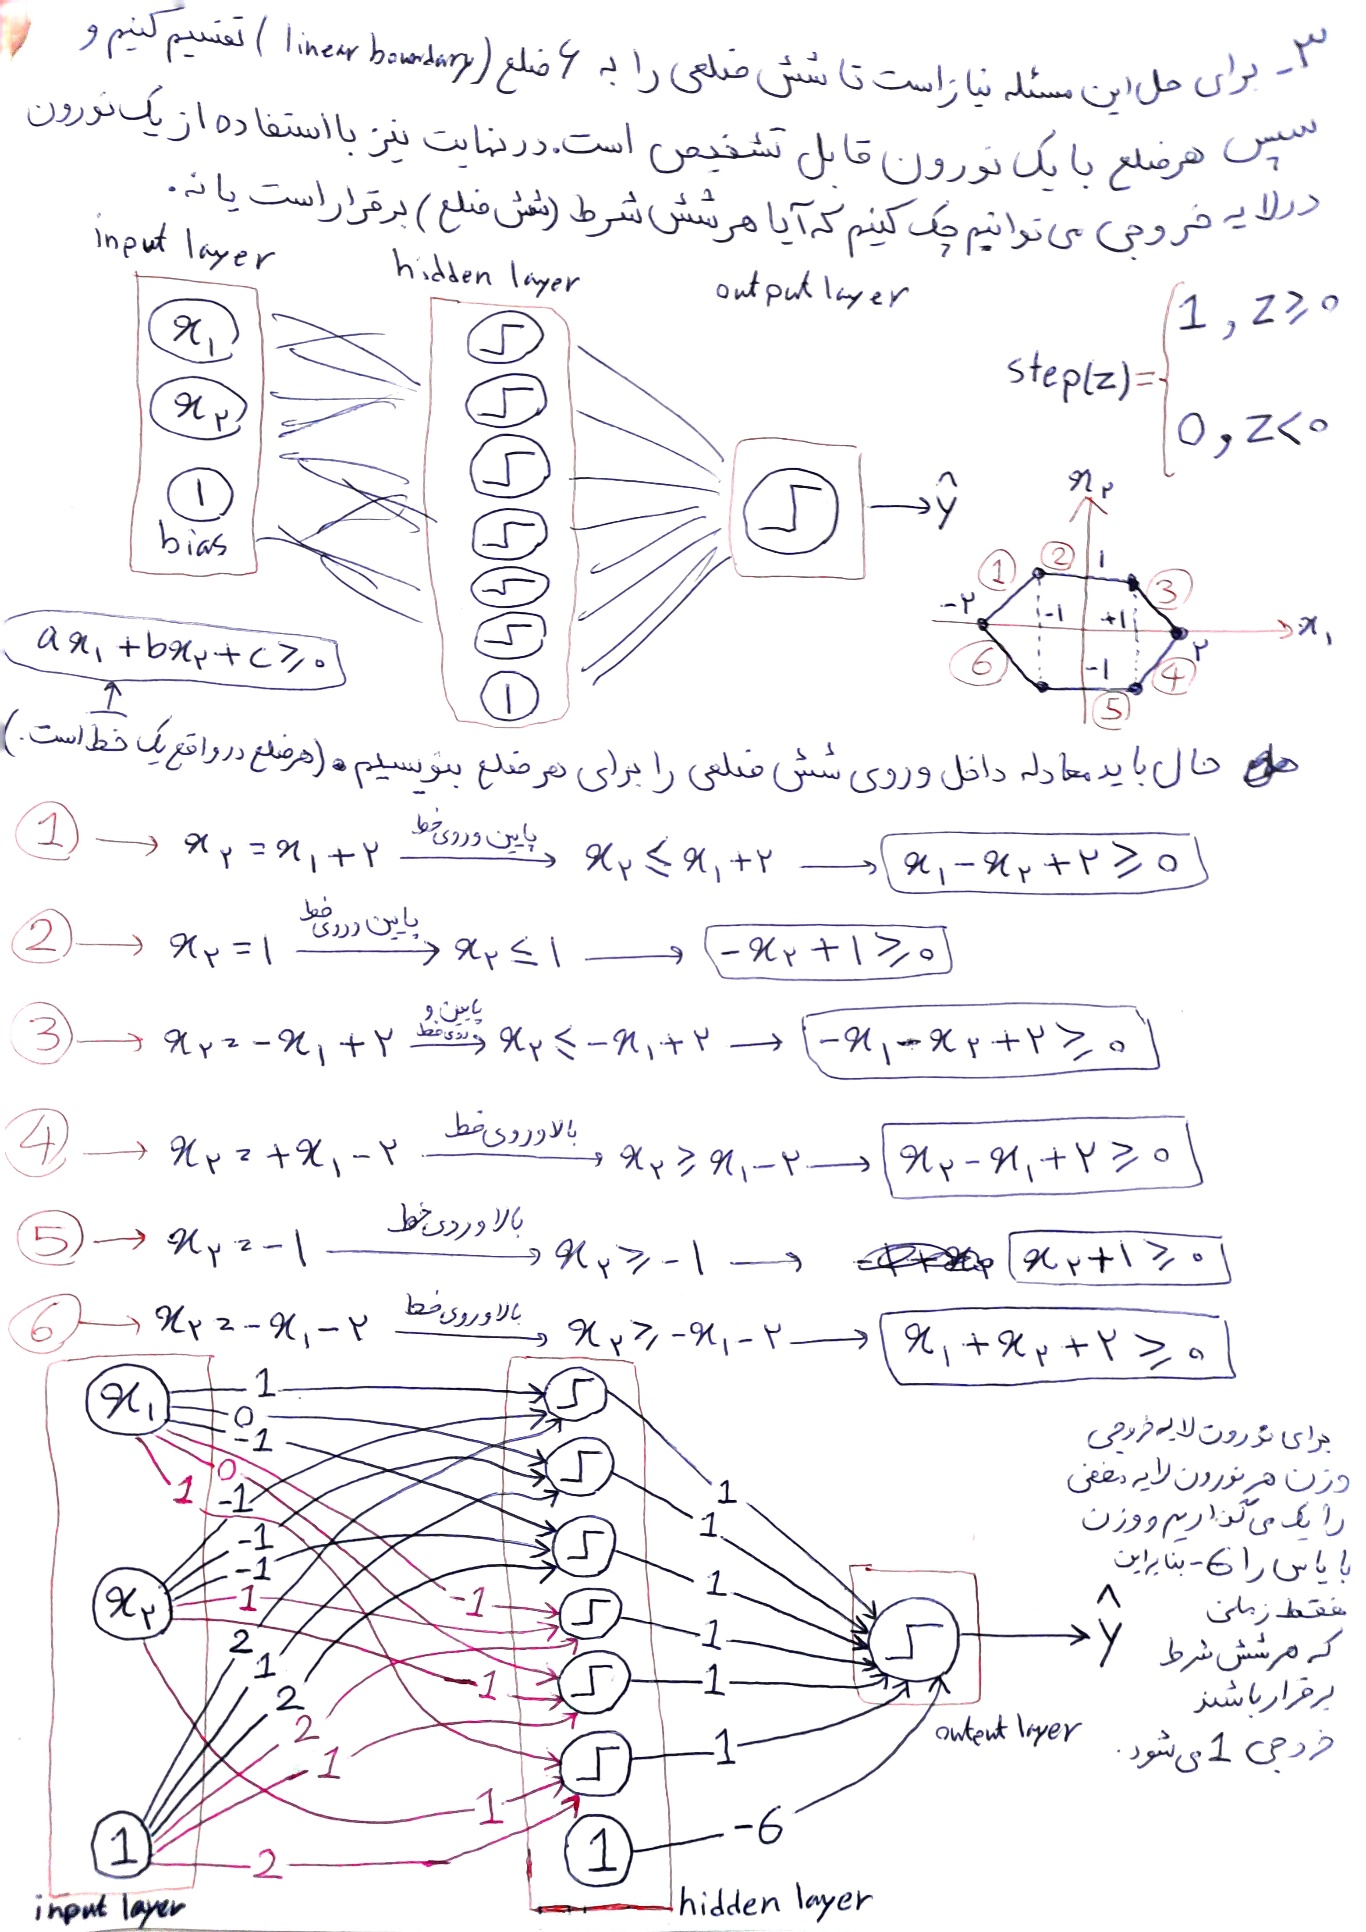 ۳- برای حل این مسئله نیاز است تا شش ضلعی را به ۶ ضلع (linear boundary) تقسیم کنیم و
سپس هر ضلع با یک نورون قابل تشخیص است. در نهایت نیز با استفاده از یک نورون
در لایه خروجی می توانیم چک کنیم که آیا هر شش شرط (شش ضلع) برقرار است یا نه.
input layer
hidden layer
output layer
x₁
x₂
1
bias
1
ŷ
step(z) = { 1 , z ≥ 0
0 , z < 0
x₂
x₁
1 2 3 4 5 6
-۲ -1 +1 ۲ 1 -1
ax₁ + bx₂ + c ≥ 0
حال باید معادله داخل و روی شش ضلعی را برای هر ضلع بنویسیم. (هر ضلع در واقع یک خط است.)
1 → x₂ = x₁ + ۲ پایین و روی خط → x₂ ≤ x₁ + ۲ → x₁ - x₂ + ۲ ≥ 0
2 → x₂ = 1 پایین و روی خط → x₂ ≤ 1 → -x₂ + 1 ≥ 0
3 → x₂ = -x₁ + ۲ پایین و روی خط → x₂ ≤ -x₁ + ۲ → -x₁ - x₂ + ۲ ≥ 0
4 → x₂ = +x₁ - ۲ بالا و روی خط → x₂ ≥ x₁ - ۲ → x₂ - x₁ + ۲ ≥ 0
5 → x₂ = -1 بالا و روی خط → x₂ ≥ -1 → x₂ + 1 ≥ 0
6 → x₂ = -x₁ - ۲ بالا و روی خط → x₂ ≥ -x₁ - ۲ → x₁ + x₂ + ۲ ≥ 0
x₁
1
0
-1
0
1
x₂
-1
-1
-1
1
-1
1
1
1
2
1
2
2
1
2
1
1
1
1
1
1
1
1
-6
ŷ
input layer
hidden layer
output layer
برای نورون لایه خروجی
وزن هر نورون لایه مخفی
را یک می گذاریم و وزن
بایاس را 6- بنابراین
فقط زمانی
که هر شش شرط
برقرار باشند
خروجی 1 می شود.